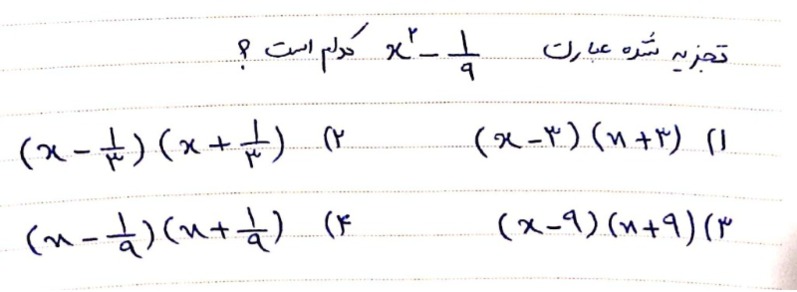 تجزیه شده عبارت x^۲ - ۱/۹ کدام است ؟
۱) (x-۳)(x+۳) ۲) (x - ۱/۳)(x + ۱/۳)
۳) (x-۹)(x+۹) ۴) (x - ۱/۹)(x + ۱/۹)